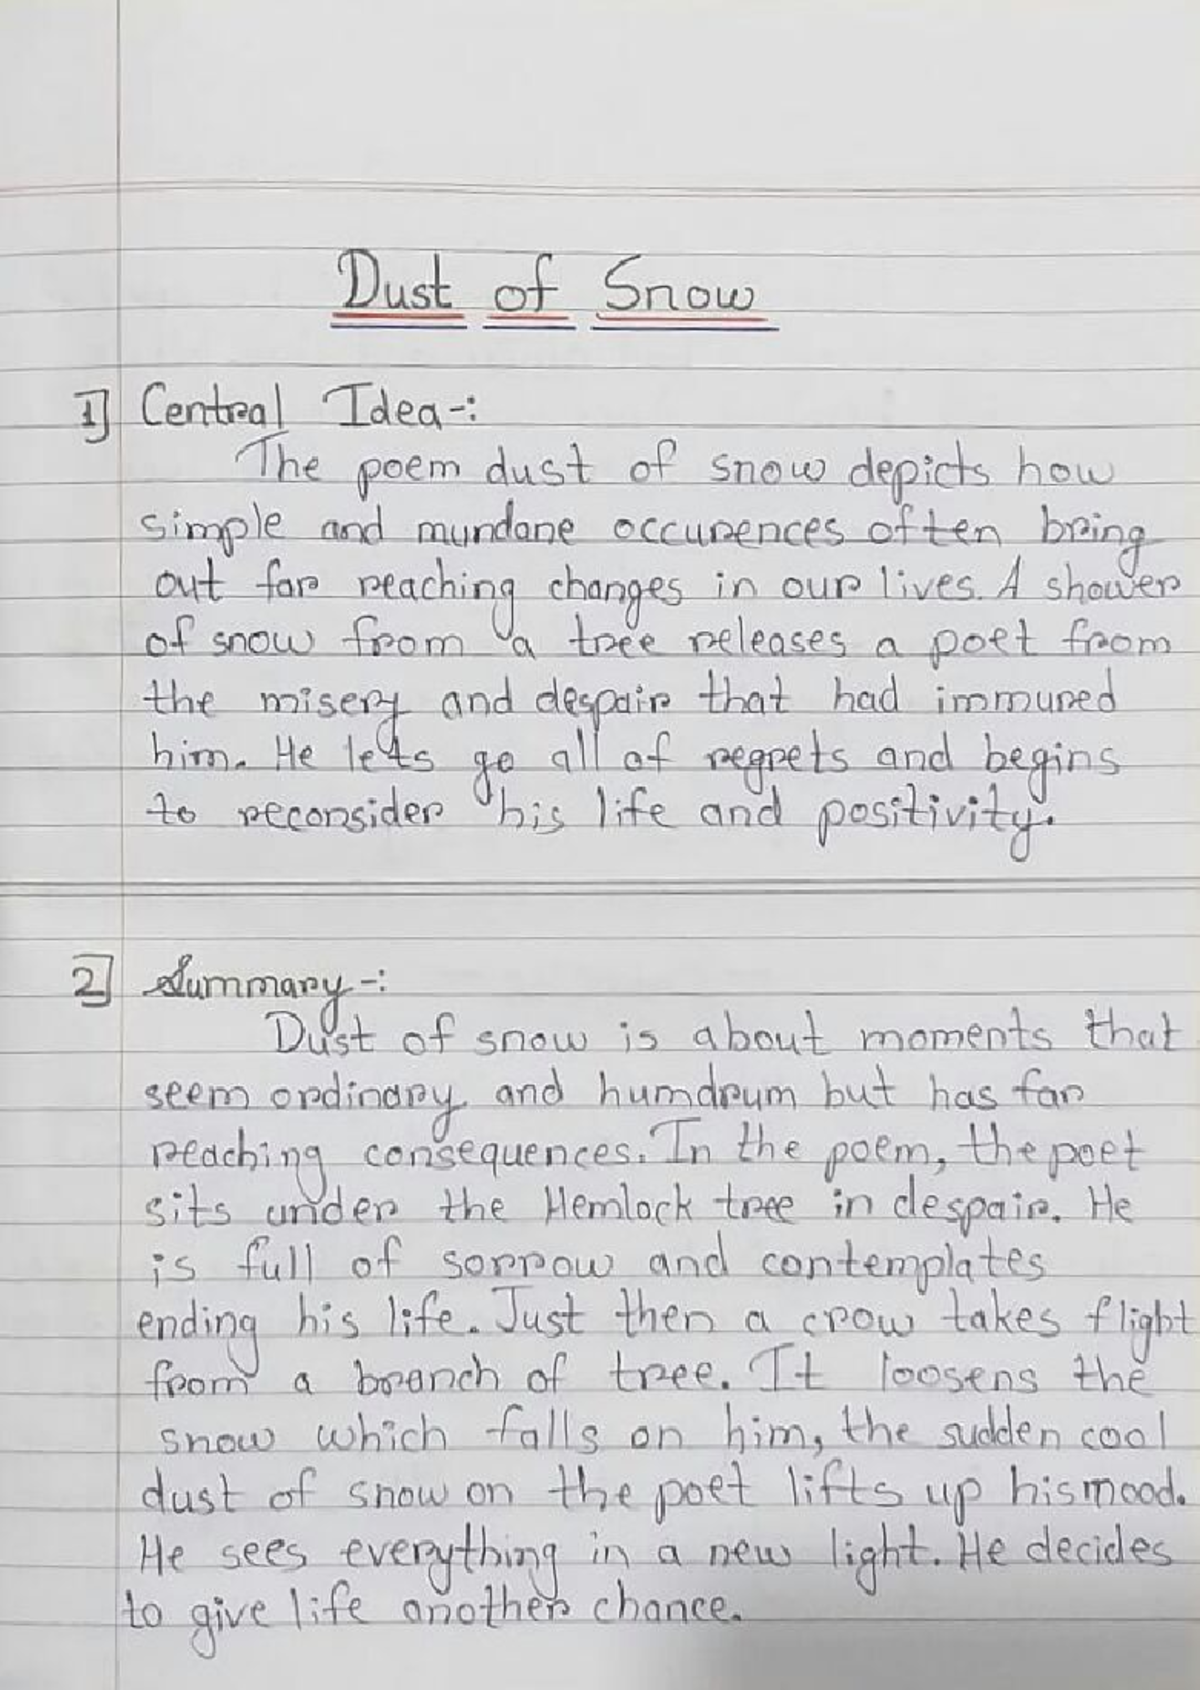 Dust of Snow
1] Central Idea-:
The poem dust of snow depicts how
simple and mundane occurences often bring
out far reaching changes in our lives. A shower
of snow from a tree releases a poet from
the misery and despair that had immured
him. He lets go all of regrets and begins
to reconsider his life and positivity.
2] Summary-:
Dust of snow is about moments that
seem ordinary and humdrum but has far
reaching consequences. In the poem, the poet
sits under the Hemlock tree in despair. He
is full of sorrow and contemplates
ending his life. Just then a crow takes flight
from a branch of tree. It loosens the
snow which falls on him, the sudden cool
dust of snow on the poet lifts up his mood.
He sees everything in a new light. He decides
to give life another chance.